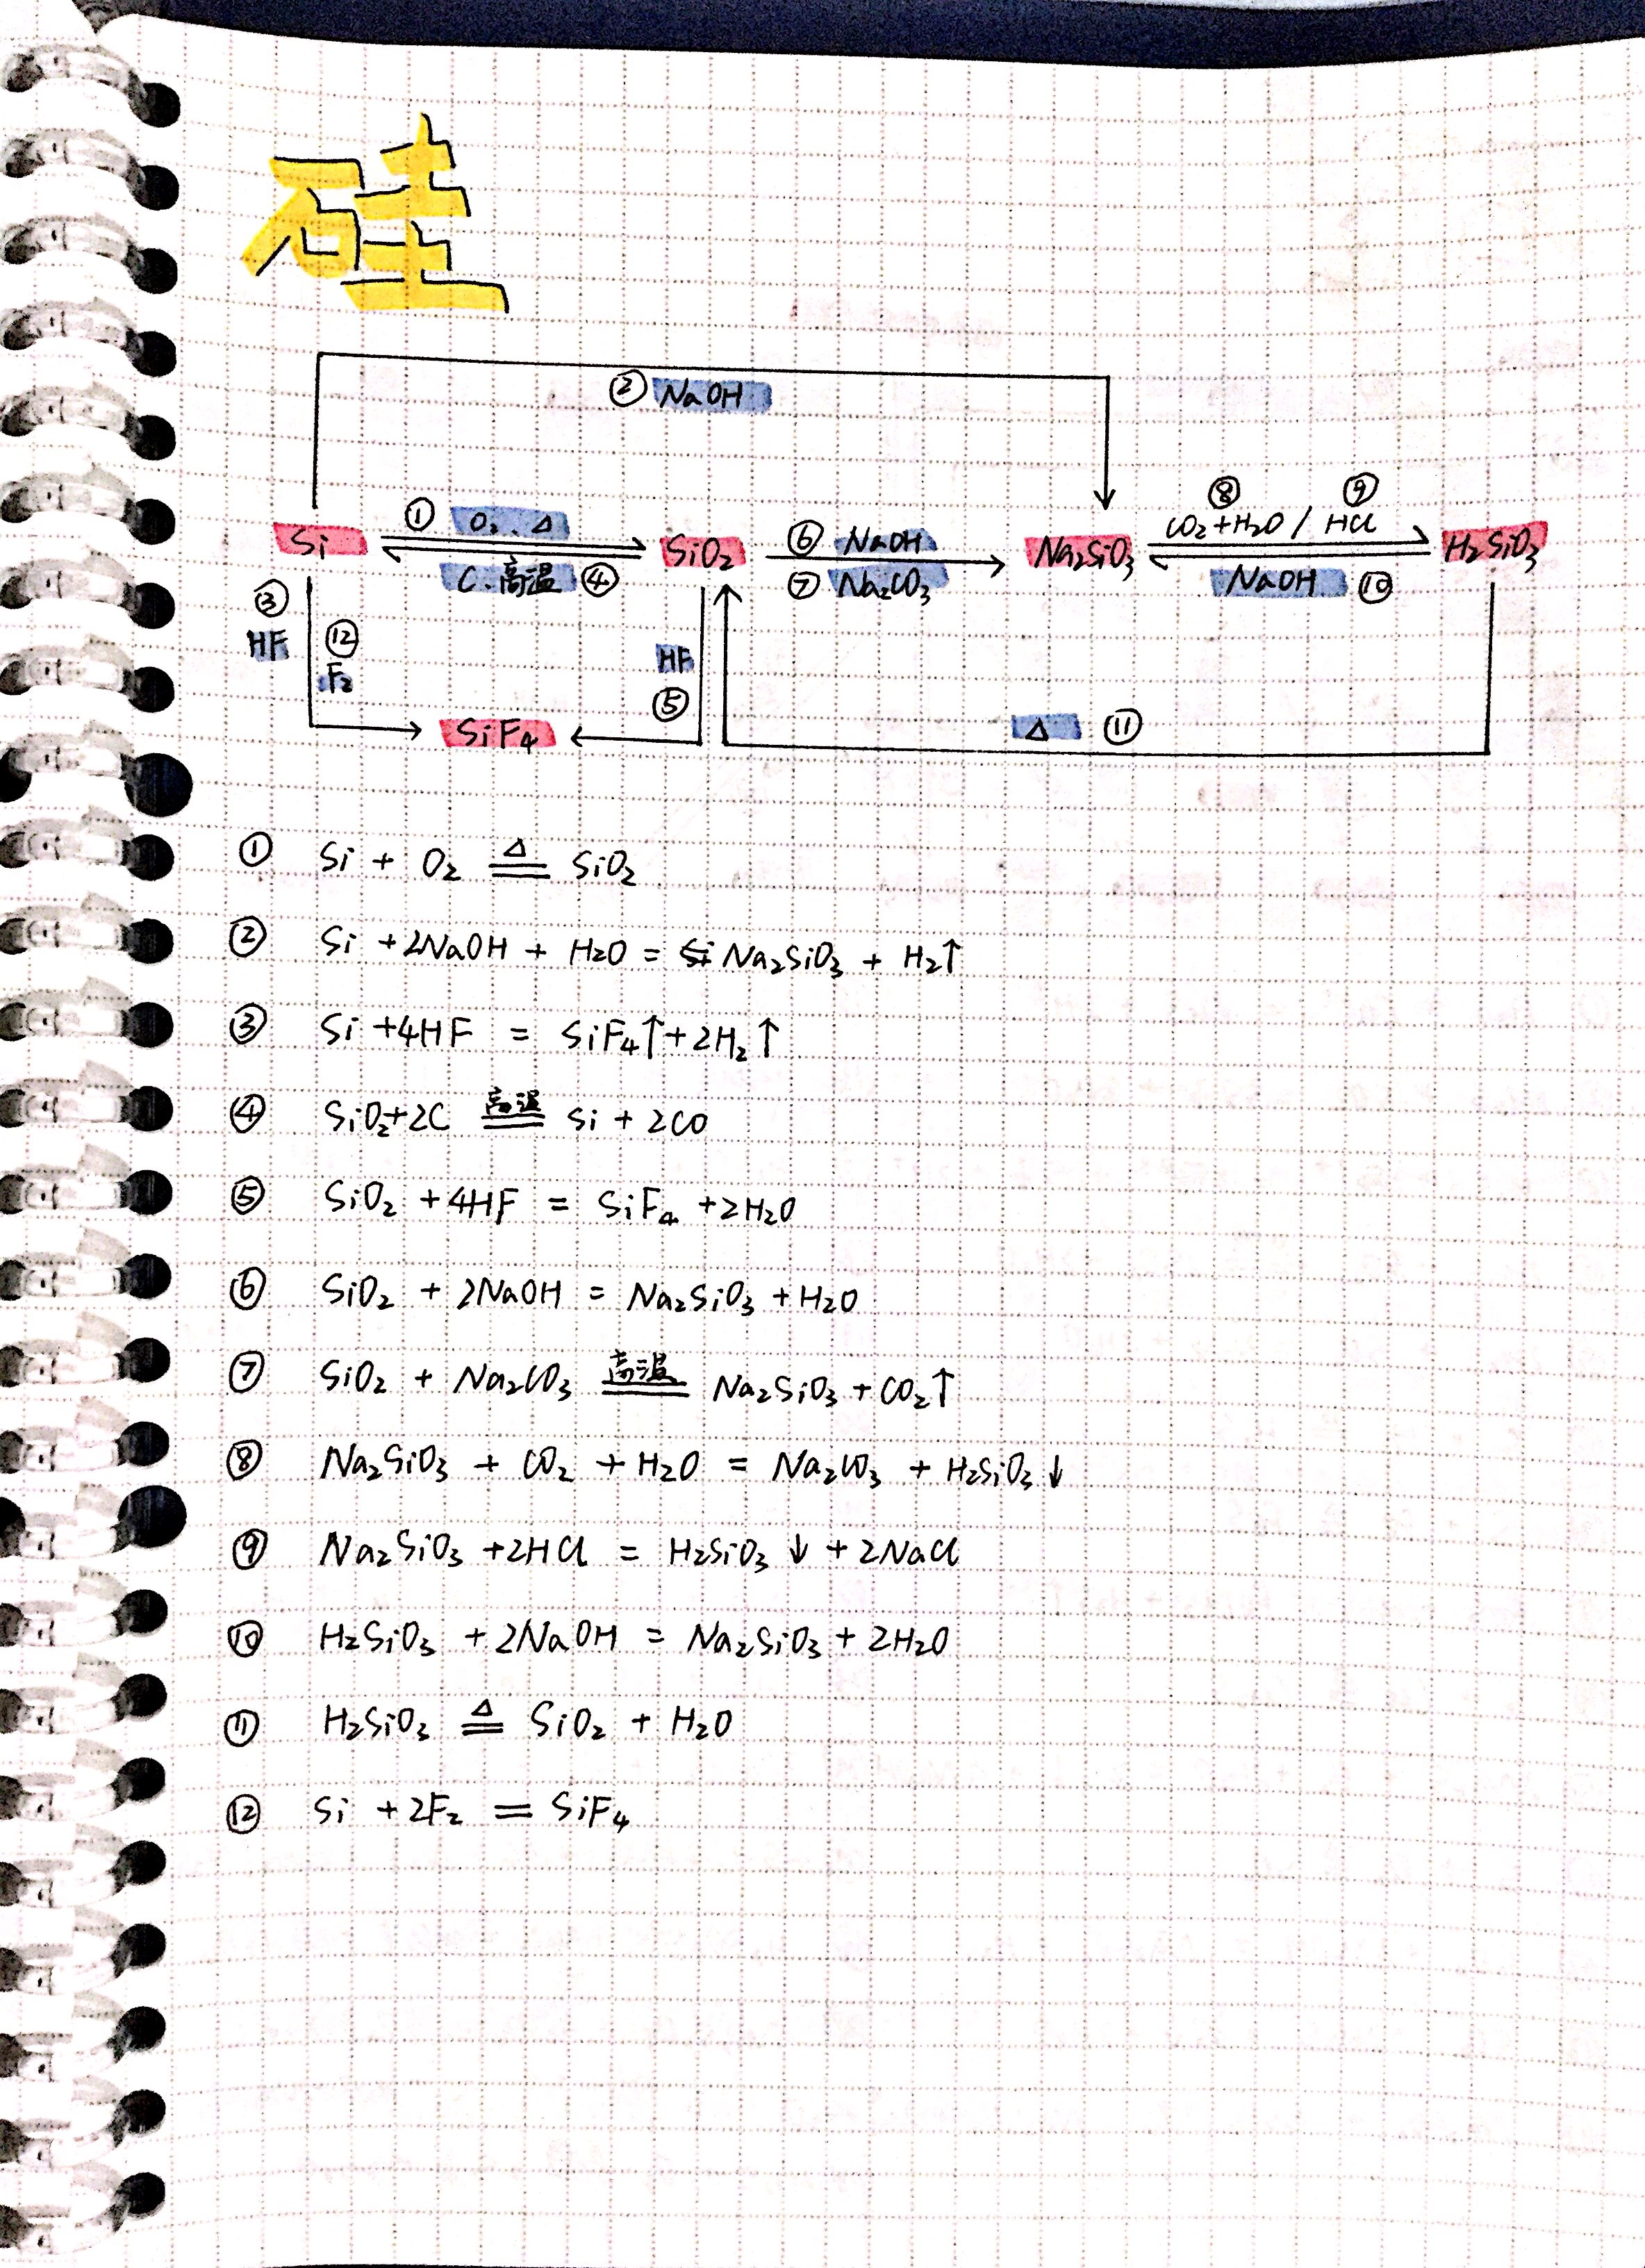 硅
② NaOH
⑧ ⑨
① O₂、△ ⑥ NaOH CO₂+H₂O / HCl
Si SiO₂ Na₂SiO₃ H₂SiO₃
C、高温 ④ ⑦ Na₂CO₃ NaOH ⑩
③ ⑫ HF
HF F₂ ⑤
SiF₄ △ ⑪
① Si + O₂ ≜ SiO₂
② Si +2NaOH + H₂O = Na₂SiO₃ + H₂↑
③ Si +4HF = SiF₄↑+2H₂↑
④ SiO₂+2C 高温 == Si + 2CO
⑤ SiO₂ +4HF = SiF₄ +2H₂O
⑥ SiO₂ + 2NaOH = Na₂SiO₃ +H₂O
⑦ SiO₂ + Na₂CO₃ 高温 == Na₂SiO₃ + CO₂↑
⑧ Na₂SiO₃ + CO₂ + H₂O = Na₂CO₃ + H₂SiO₃↓
⑨ Na₂SiO₃ +2HCl = H₂SiO₃↓ +2NaCl
⑩ H₂SiO₃ +2NaOH = Na₂SiO₃ + 2H₂O
⑪ H₂SiO₃ ≜ SiO₂ + H₂O
⑫ Si +2F₂ = SiF₄